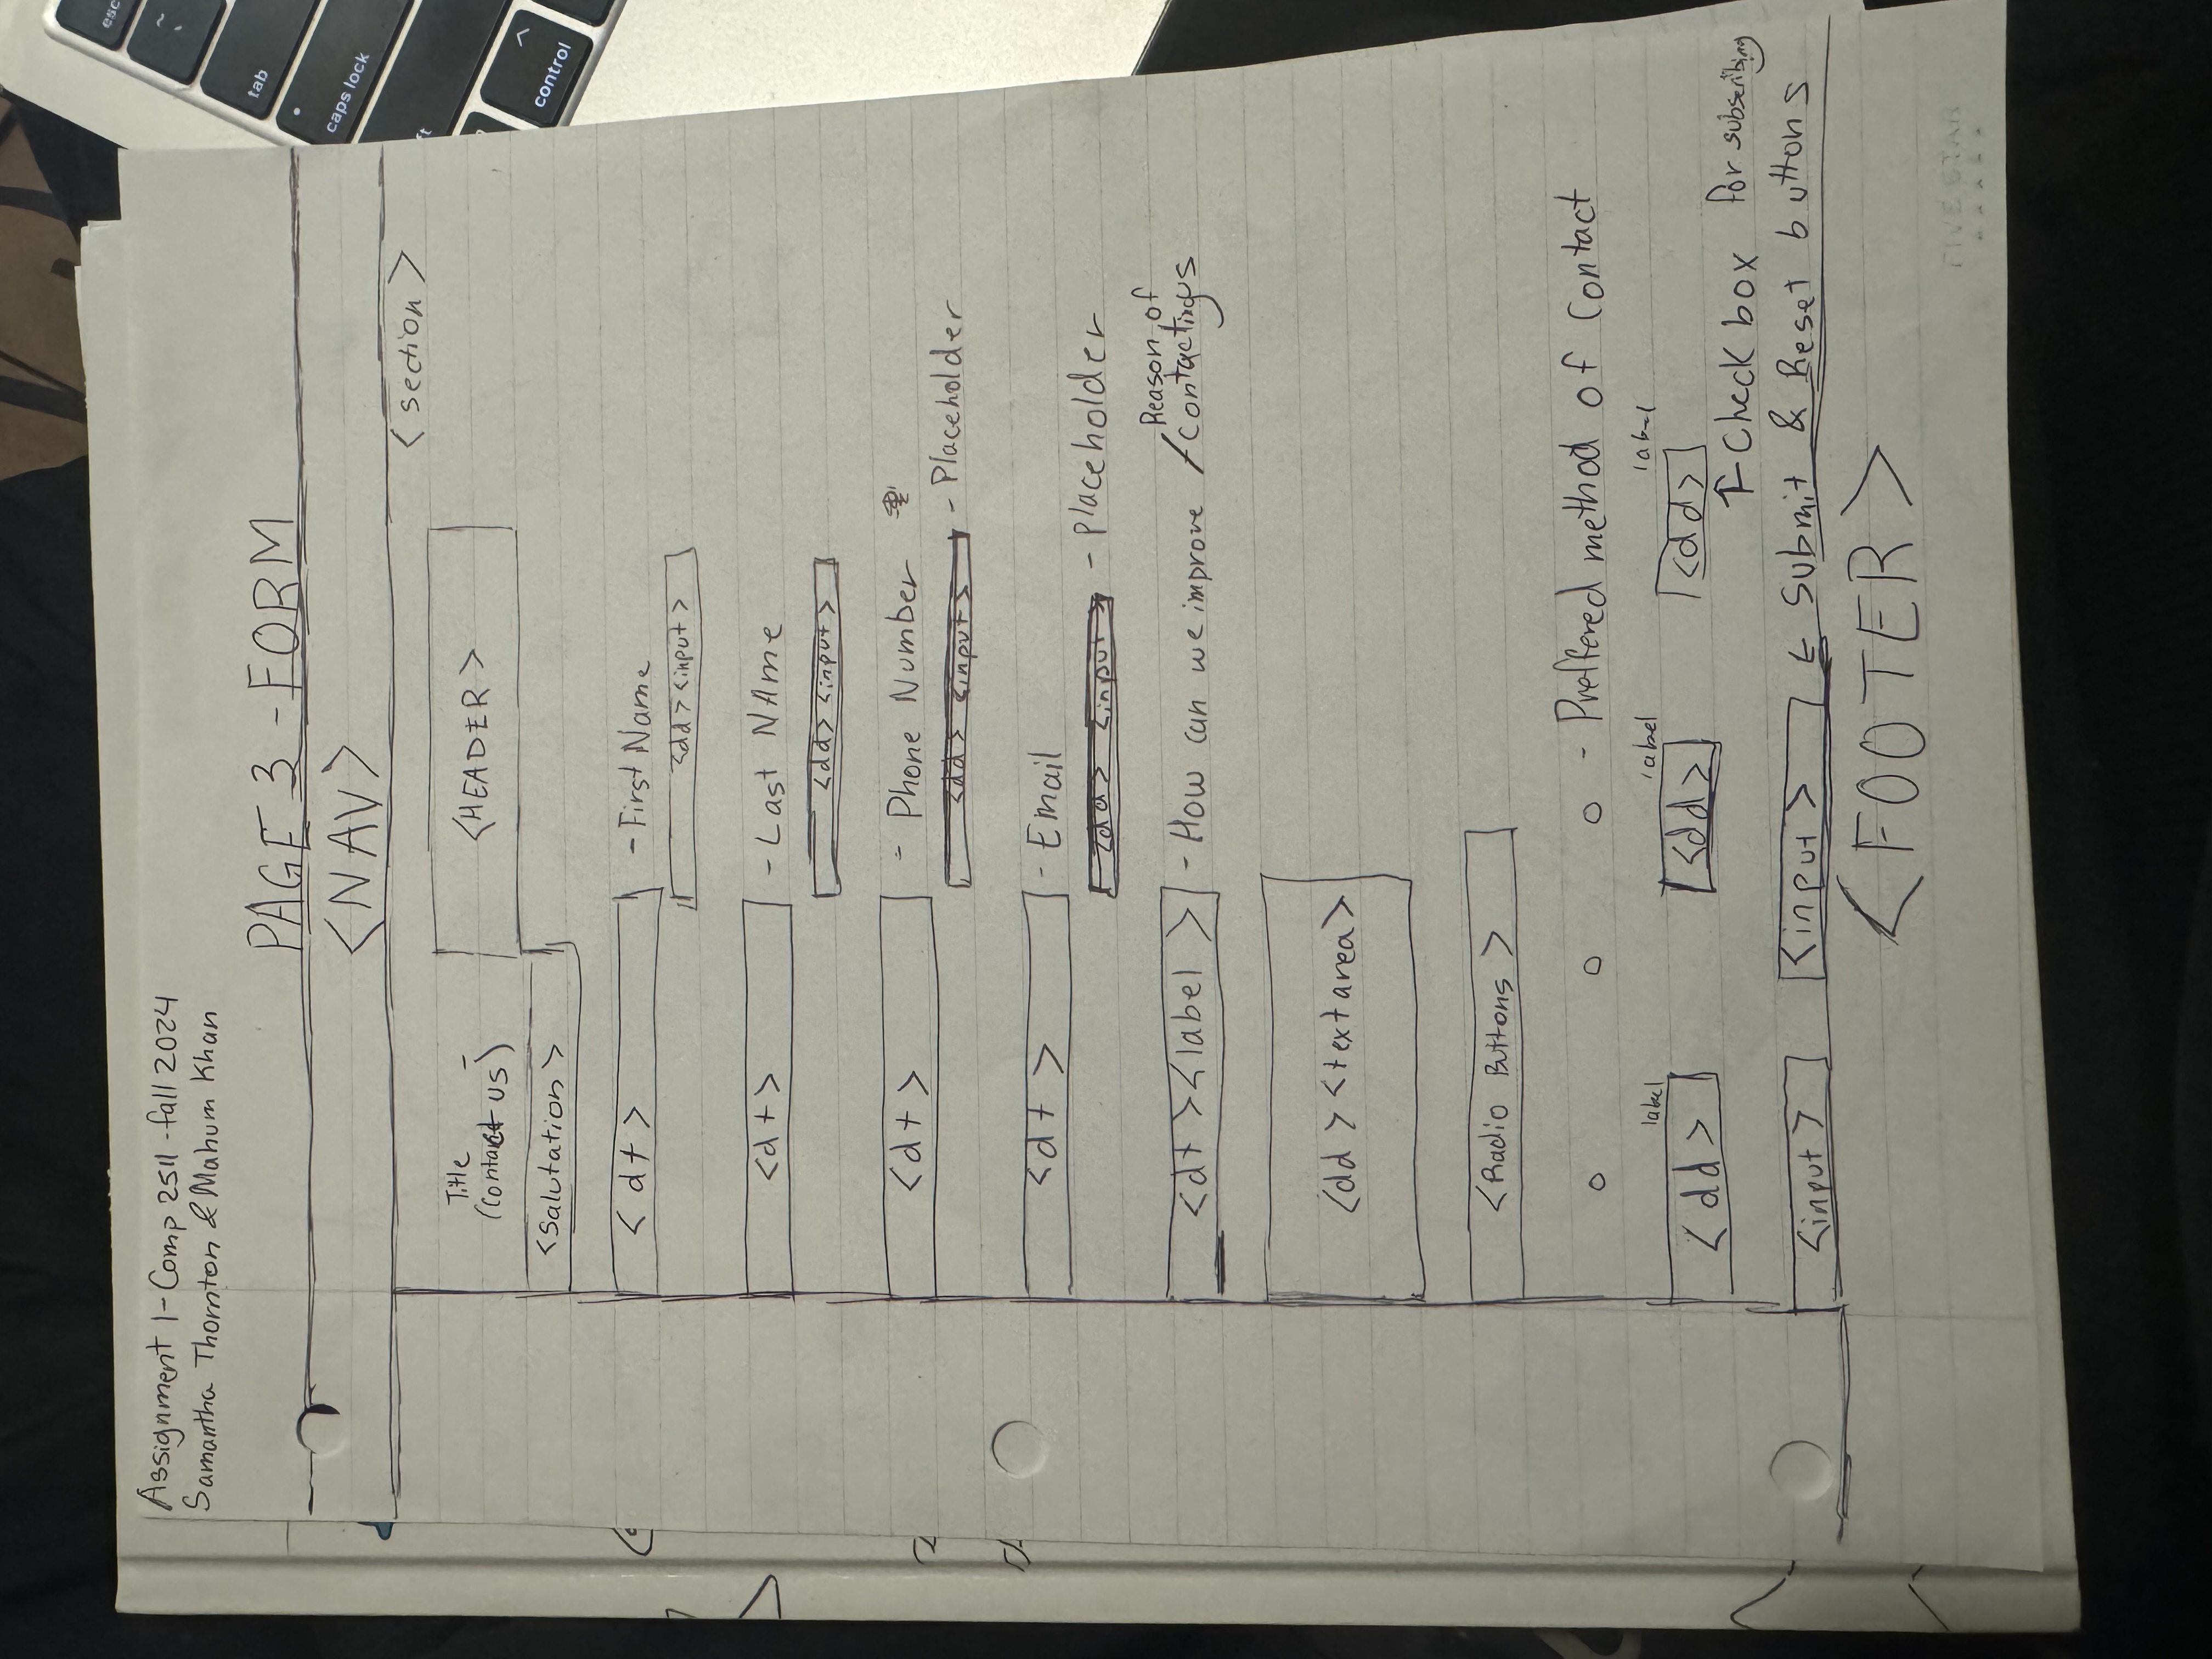 Assignment 1-Comp 2511 -fall 2024
Samantha Thornton & Mahum Khan
PAGE 3 -FORM
<NAV>
<section>
Title -
(Contact us)
<HEADER>
<Salutation>
<dt> -First Name
<dd><input>
<dt> -Last NAme
<dd><input>
<dt> - Phone Number
<dd> <input> -Placeholder
<dt> - Email
<dd> <input> -Placeholder
<dt><label> -How can we improve / Reason of
contacting us
<dd><textarea>
<Radio Buttons>
- Preffered method of Contact
label label label
<dd> <dd> <dd>
↑ Check box for subscribing
<input> <input> ← Submit & Reset buttons
<FOOTER>
FIVE STAR
esc
~
`
tab
caps lock
^
control